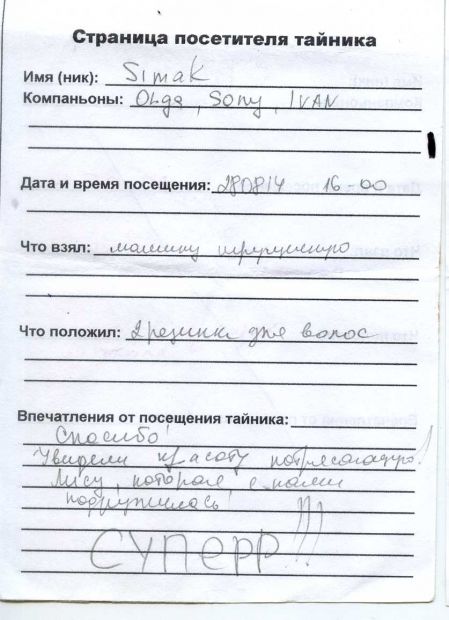 Страница посетителя тайника
Имя (ник): Simak
Компаньоны: Olga, Sony, IVAN
Дата и время посещения: 280814 16-00
Что взял: машинку игрушечную
Что положил: 2 резинки для волос
Впечатления от посещения тайника:
Спасибо!
Увидели красоту потрясающую!
Лису, которая с нами
подружилась!
СУПЕРР!!!